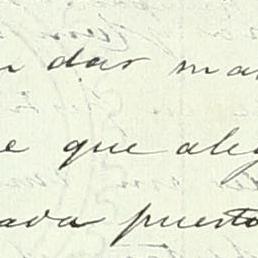 dar ma
e que aleg
ava puerto